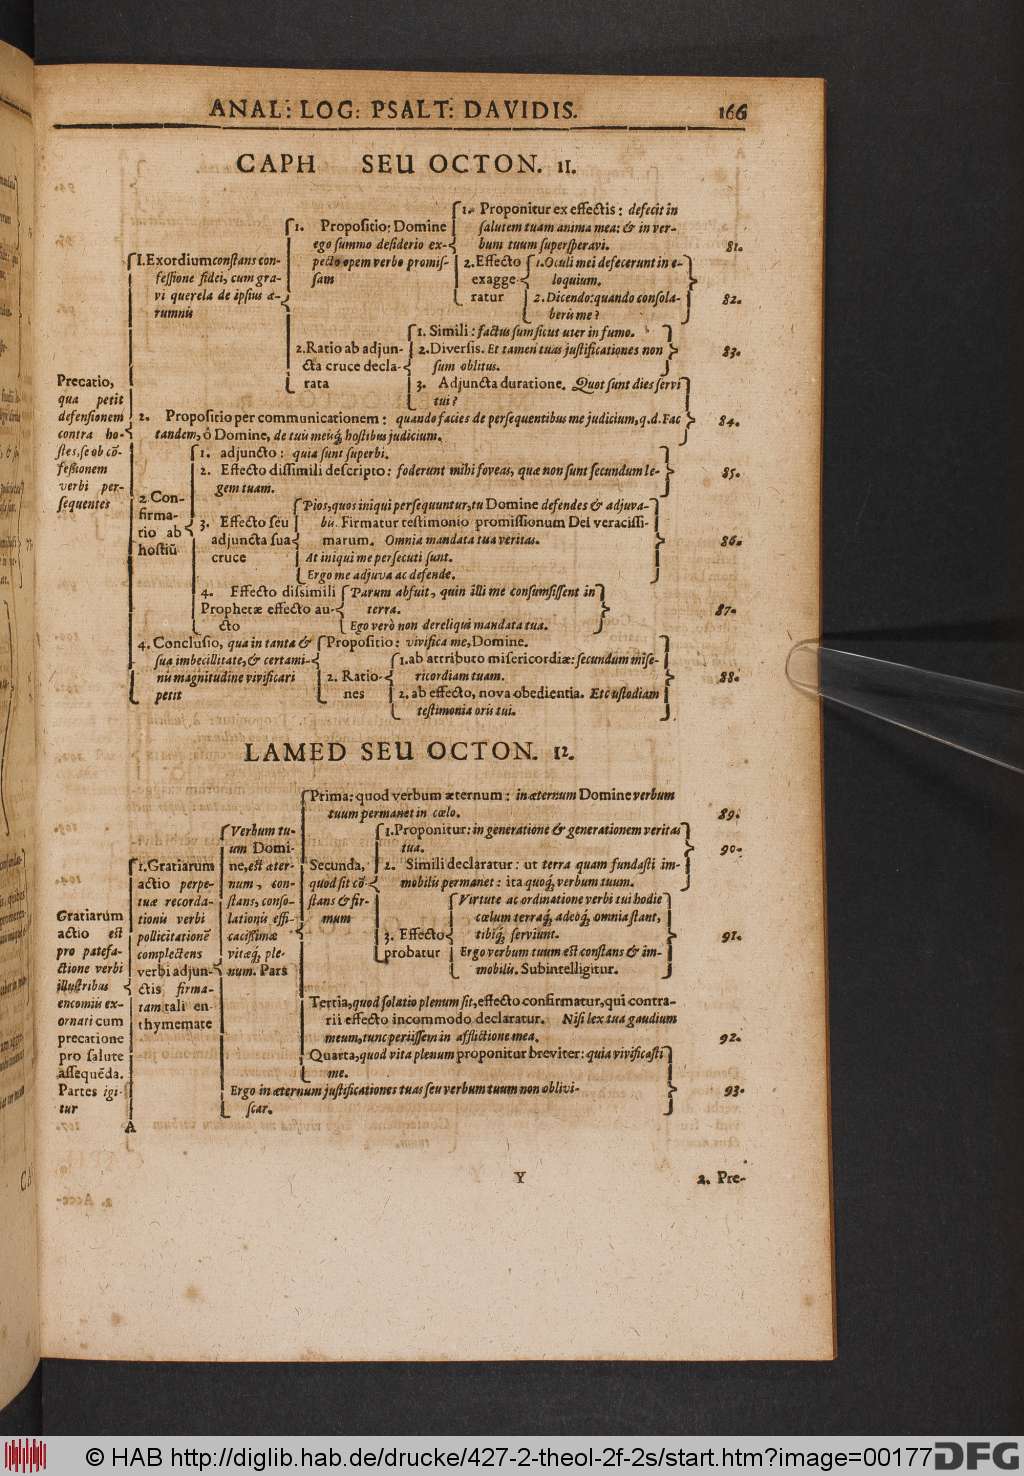 ANAL: LOG: PSALT: DAVIDIS. 166
CAPH SEU OCTON. 11.
Precatio,
qua petit
defensionem
contra ho-
stes, se ob cõ-
feßionem
verbi per-
sequentes
1. Exordium constans con-
fessione fidei, cum gra-
vi querela de ipsius æ-
rumnis
1. Propositio: Domine
ego summo desiderio ex-
pecto opem verbo promis-
sam
1. Proponitur ex effectis: defecit in
salutem tuam anima mea: & in ver-
bum tuum supersperavi. 81.
2. Effecto
exagge-
ratur
1. Oculi mei defecerunt in e-
loquium.
2. Dicendo: quando consola-
beris me? 82.
2. Ratio ab adjun-
cta cruce decla-
rata
1. Simili: factus sum sicut uter in fumo.
2. Diversis. Et tamen tuas justificationes non
sum oblitus. 83.
3. Adjuncta duratione. Quot sunt dies servi
tui?
2. Propositio per communicationem: quando facies de persequentibus me judicium, q.d. Fac
tandem, ô Domine, de tuis meisq́, hostibus judicium. 84.
2. Con-
firma-
tio ab
hostiũ
1. adjuncto: quia sunt superbi.
2. Effecto dissimili descripto: foderunt mihi foveas, quæ non sunt secundum le-
gem tuam. 85.
3. Effecto seu
adjuncta sua
cruce
Pios, quos iniqui persequuntur, tu Domine defendes & adjuva-
bis. Firmatur testimonio promissionum Dei veracissi-
marum. Omnia mandata tua veritas. 86.
At iniqui me persecuti sunt.
Ergo me adjuva ac defende.
4. Effecto dissimili
Prophetæ effecto au-
cto
Parum abfuit, quin illi me consumsissent in
terra. 87.
Ego verò non dereliqui mandata tua.
4. Conclusio, qua in tanta &
sua imbecillitate, & certami-
nis magnitudine vivificari
petit
Propositio: vivifica me, Domine.
2. Ratio-
nes
1. ab attributo misericordiæ: secundum mise-
ricordiam tuam. 88.
2. ab effecto, nova obedientia. Et custodiam
testimonia oris tui.
LAMED SEU OCTON. 12.
Gratiarum
actio est
pro patefa-
ctione verbi
illustribus
encomiis ex-
ornati cum
precatione
pro salute
assequẽda.
Partes igi-
tur
1. Gratiarum
actio perpe-
tuæ recorda-
tionis verbi
pollicitationẽ
complectens
verbi adjun-
ctis firma-
tam tali en-
thymemate
A
Verbum tu-
um Domi-
ne, est æter-
num, con-
stans, conso-
lationis effi-
cacissimæ
vitæq́, ple-
num. Pars
Prima: quod verbum æternum: in æternum Domine verbum
tuum permanet in cœlo. 89.
Secunda,
quod sit cõ-
stans & fir-
mum
1. Proponitur: in generatione & generationem veritas
tua.
2. Simili declaratur: ut terra quam fundasti im-
mobilis permanet: ita quoq́, verbum tuum. 90.
3. Effecto
probatur
Virtute ac ordinatione verbi tui hodie
cœlum terraq́, adeoq́, omnia stant,
tibiq́, serviunt. 91.
Ergo verbum tuum est constans & im-
mobilis. Subintelligitur.
Tertia, quod solatio plenum sit, effecto confirmatur, qui contra-
rii effecto incommodo declaratur. Nisi lex tua gaudium
meum, tunc periissem in afflictione mea. 92.
Quarta, quod vita plenum proponitur breviter: quia vivificasti
me.
Ergo in æternum justificationes tuas seu verbum tuum non oblivi-
scar. 93.
Y 2. Pre-
© HAB http://diglib.hab.de/drucke/427-2-theol-2f-2s/start.htm?image=00177
DFG